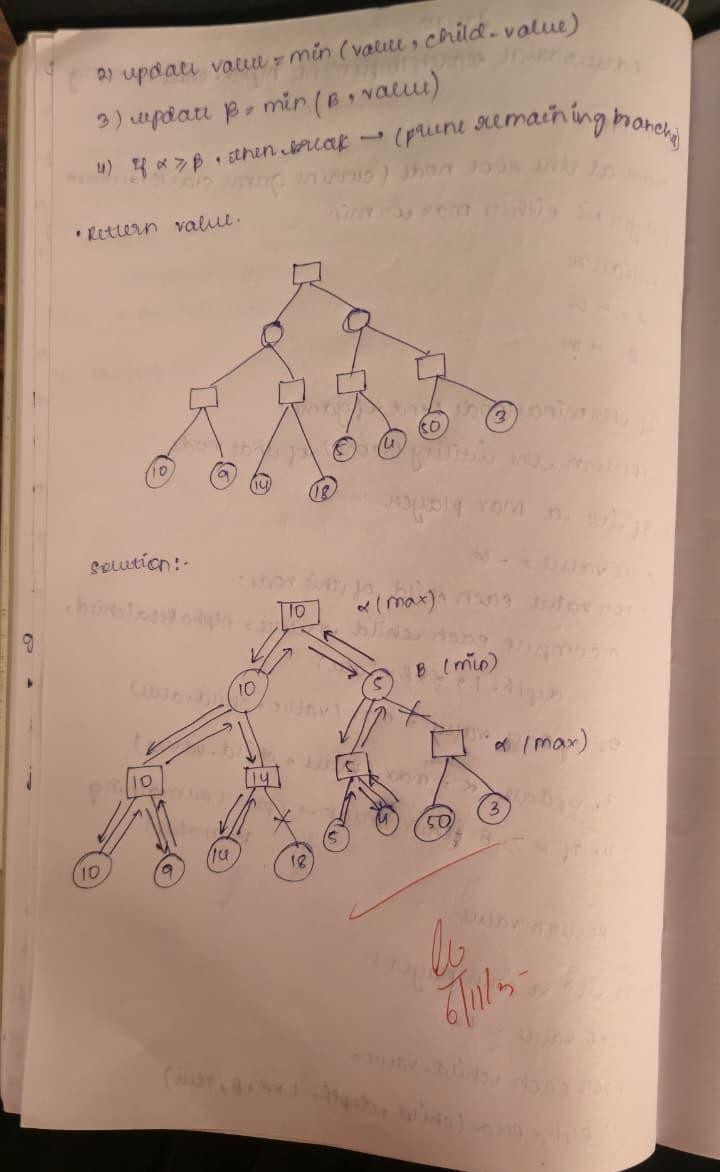 2) update value = min (value, child-value)
3) update β = min (β, value)
4) If α ≥ β, then break → (prune remaining branch)
• Return value.
10 9 14 18 5 4 50 3
Solution:-
10 α (max)
10 5 β (min)
10 14 5 α (max)
10 9 14 18 5 4 50 3
6/11/25